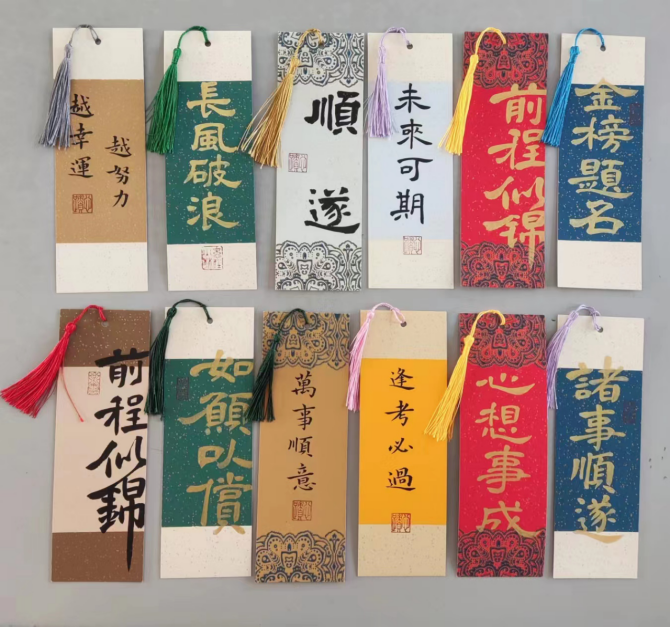 越努力
越幸運
長風破浪
順遂
未來可期
前程似錦
金榜題名
前程似錦
如願以償
萬事順意
逢考必過
心想事成
諸事順遂